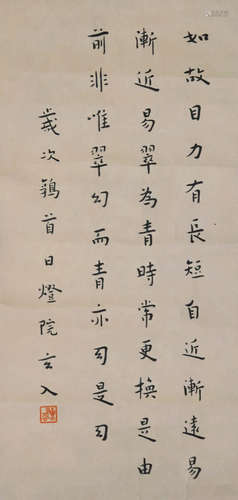 如故目力有長短自近漸遠易
漸近易翠為青時常更換是由
前非唯翠幻而青亦幻是幻
歲次鶉首日燈院玄入